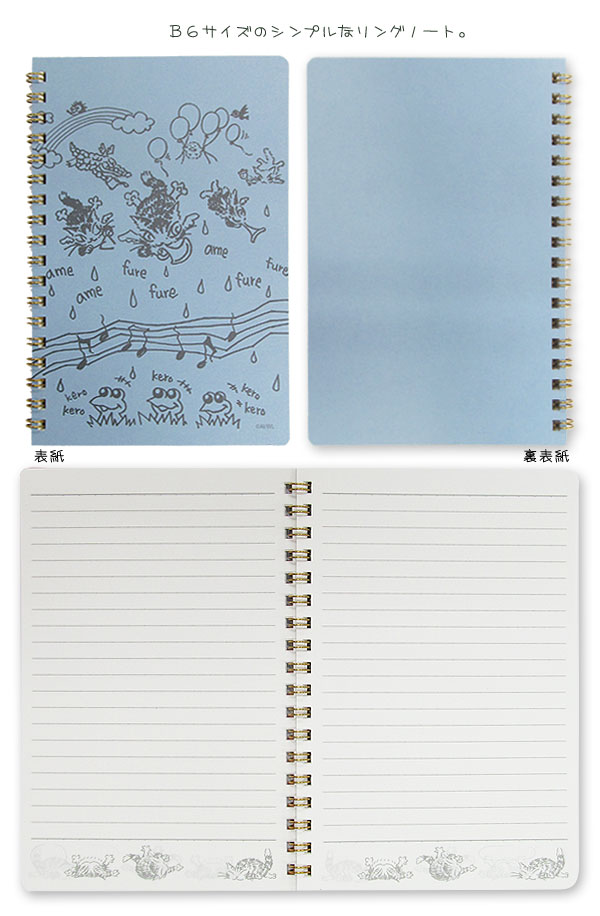 B6サイズのシンプルなリングノート。
ame
fure
ame
fure
ame
fure
fure
kero
kero
kero
kero
kero
表紙
裏表紙